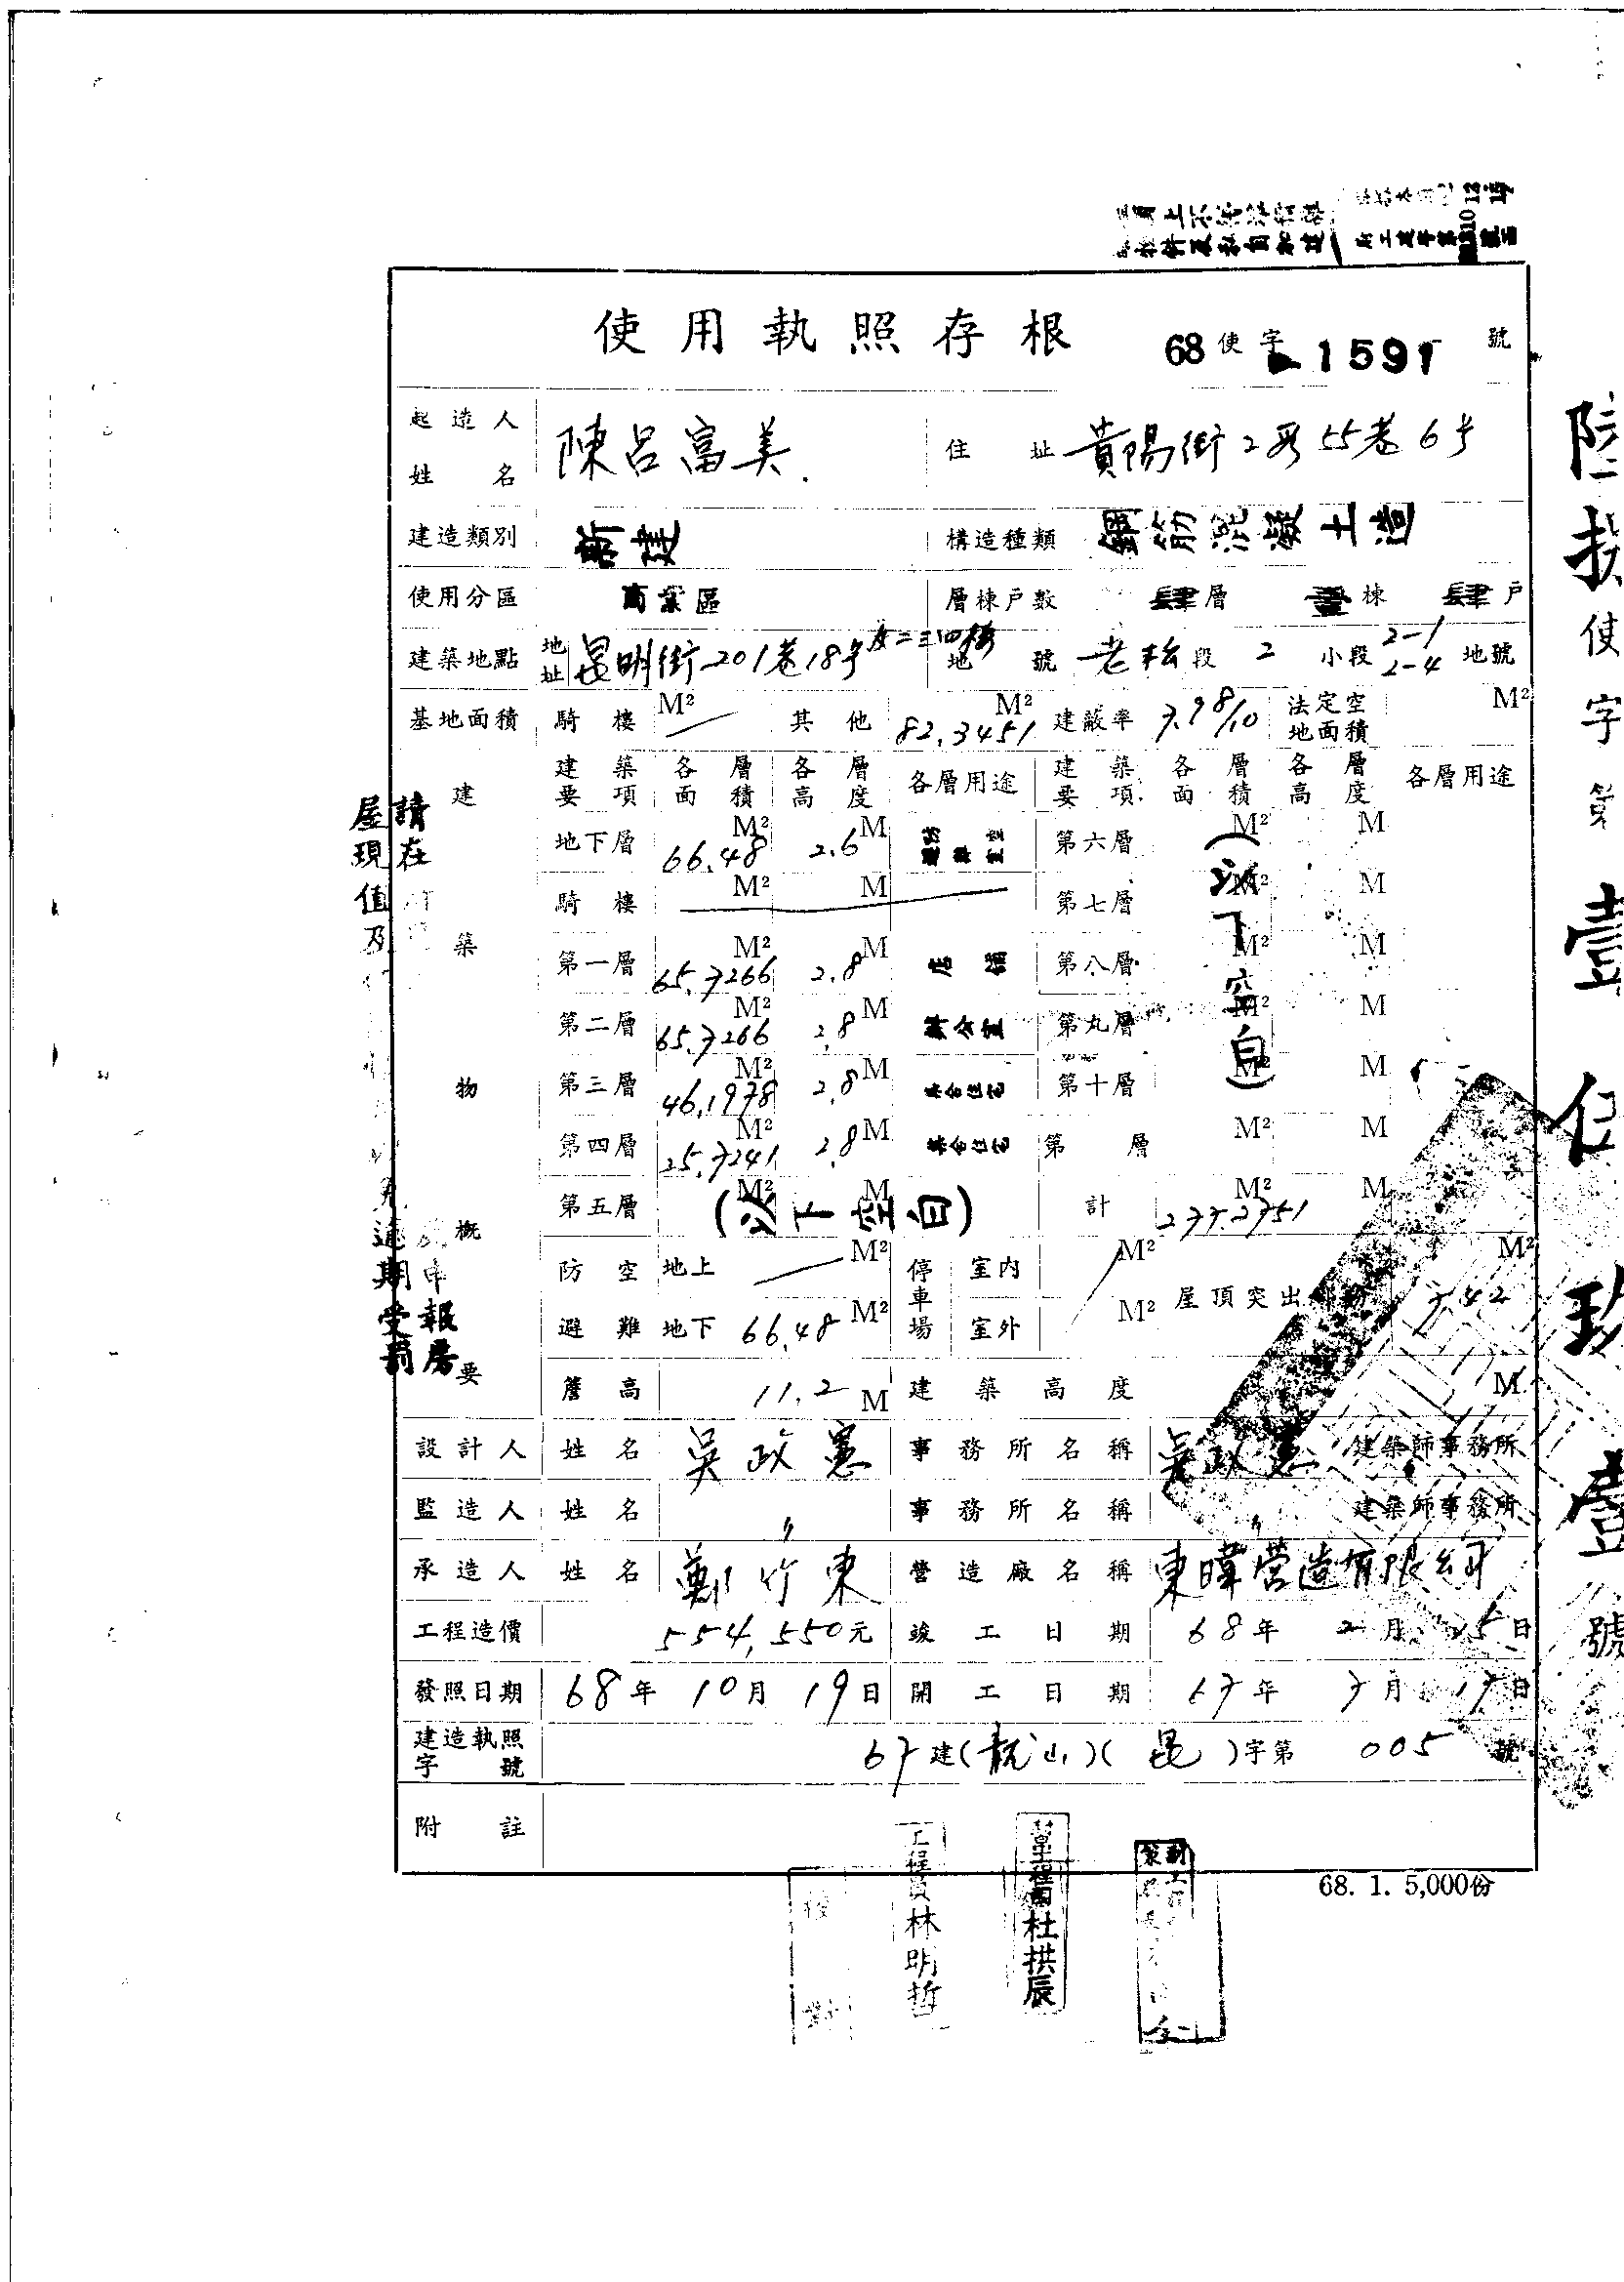 使用執照存根 68使字 1591 號
起造人姓名 陳呂富美 住址 貴陽街2段55巷6号
建造類別 新建 構造種類 鋼筋混凝土造
使用分區 商業區 層棟戶數 肆層 壹棟 肆戶
建築地點 地址 昆明街201巷18号及二三四樓 地號 老松段 2 小段 2-1 2-4 地號
基地面積 騎樓 M² 其他 82.3451 M² 建蔽率 7.98/10 法定空地面積 M²
建築物概要
建築要項 各層面積 各層高度 各層用途 建築要項 各層面積 各層高度 各層用途
地下層 66.48 M² 2.6 M 第六層 M² M
騎樓 M² M 第七層 M² M
第一層 65.7266 M² 2.8 M 店舖 第八層 M² M
第二層 65.7266 M² 2.8 M 辦公室 第九層 M² M
第三層 46.1978 M² 2.8 M 集合住宅 第十層 M² M
第四層 25.7241 M² 2.8 M 集合住宅 第 層 M² M
第五層 M² M (以下空白) 計 277.2751 M² M
(以下空白)
防空避難 地上 M² 停車場 室內 M² 屋頂突出 7.42 M²
地下 66.48 M² 室外 M²
簷高 11.2 M 建築高度 M
設計人 姓名 吳政憲 事務所名稱 吳政憲 建築師事務所
監造人 姓名 〃 事務所名稱 〃 建築師事務所
承造人 姓名 鄭竹東 營造廠名稱 東暐營造有限公司
工程造價 554,550元 竣工日期 68年 2月 25日
發照日期 68年 10月 19日 開工日期 67年 7月 17日
建造執照字號 67建(龍山)(昆)字第 005 號
附註
68. 1. 5,000份
工程員林明哲
杜拱辰
使字第壹仟
玖壹號
請在
屋現值及
逾期申報房
受罰